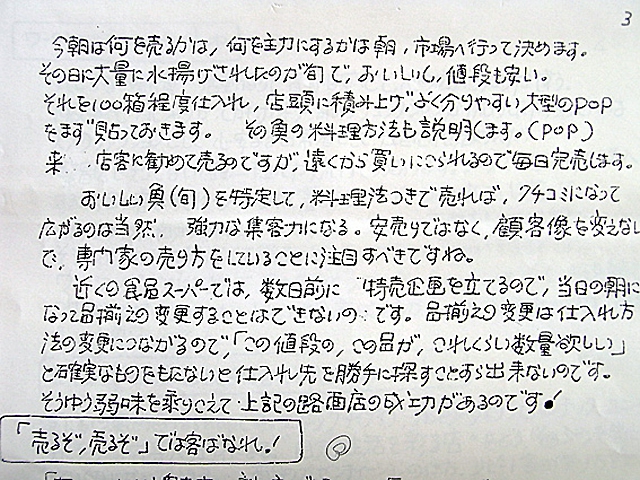 3
今朝は何を売るかは、何を主力にするかは朝、市場へ行って決めます。
その日に大量に水揚げされたのが旬で、おいしいし、値段も安い。
それを100箱程度仕入れ、店頭に積み上げ、よく分りやすい大型のPOP
をまず貼っておきます。 その魚の料理方法も説明します。(POP)
来店客に勧めて売るのですが、遠くから買いにこられるので毎日完売します。
おいしい魚(旬)を特定して、料理法つきで売れば、クチコミになって
広がるのは当然、強力な集客力になる。安売りではなく、顧客像を変えない
で、専門家の売り方をしていることに注目すべきですね。
近くの食品スーパーでは、数日前に特売企画を立てるので、当日の朝に
なって品揃えの変更することはできないのです。品揃えの変更は仕入れ方
法の変更につながるので、「この値段の、この品が、これくらい数量欲しい」
と確実なものをもたないと仕入れ先を勝手に探すことすら出来ないのです。
そうゆう弱味を乗りこえて上記の路面店の成功があるのです!
「売るぞ、売るぞ」では客はなれ!